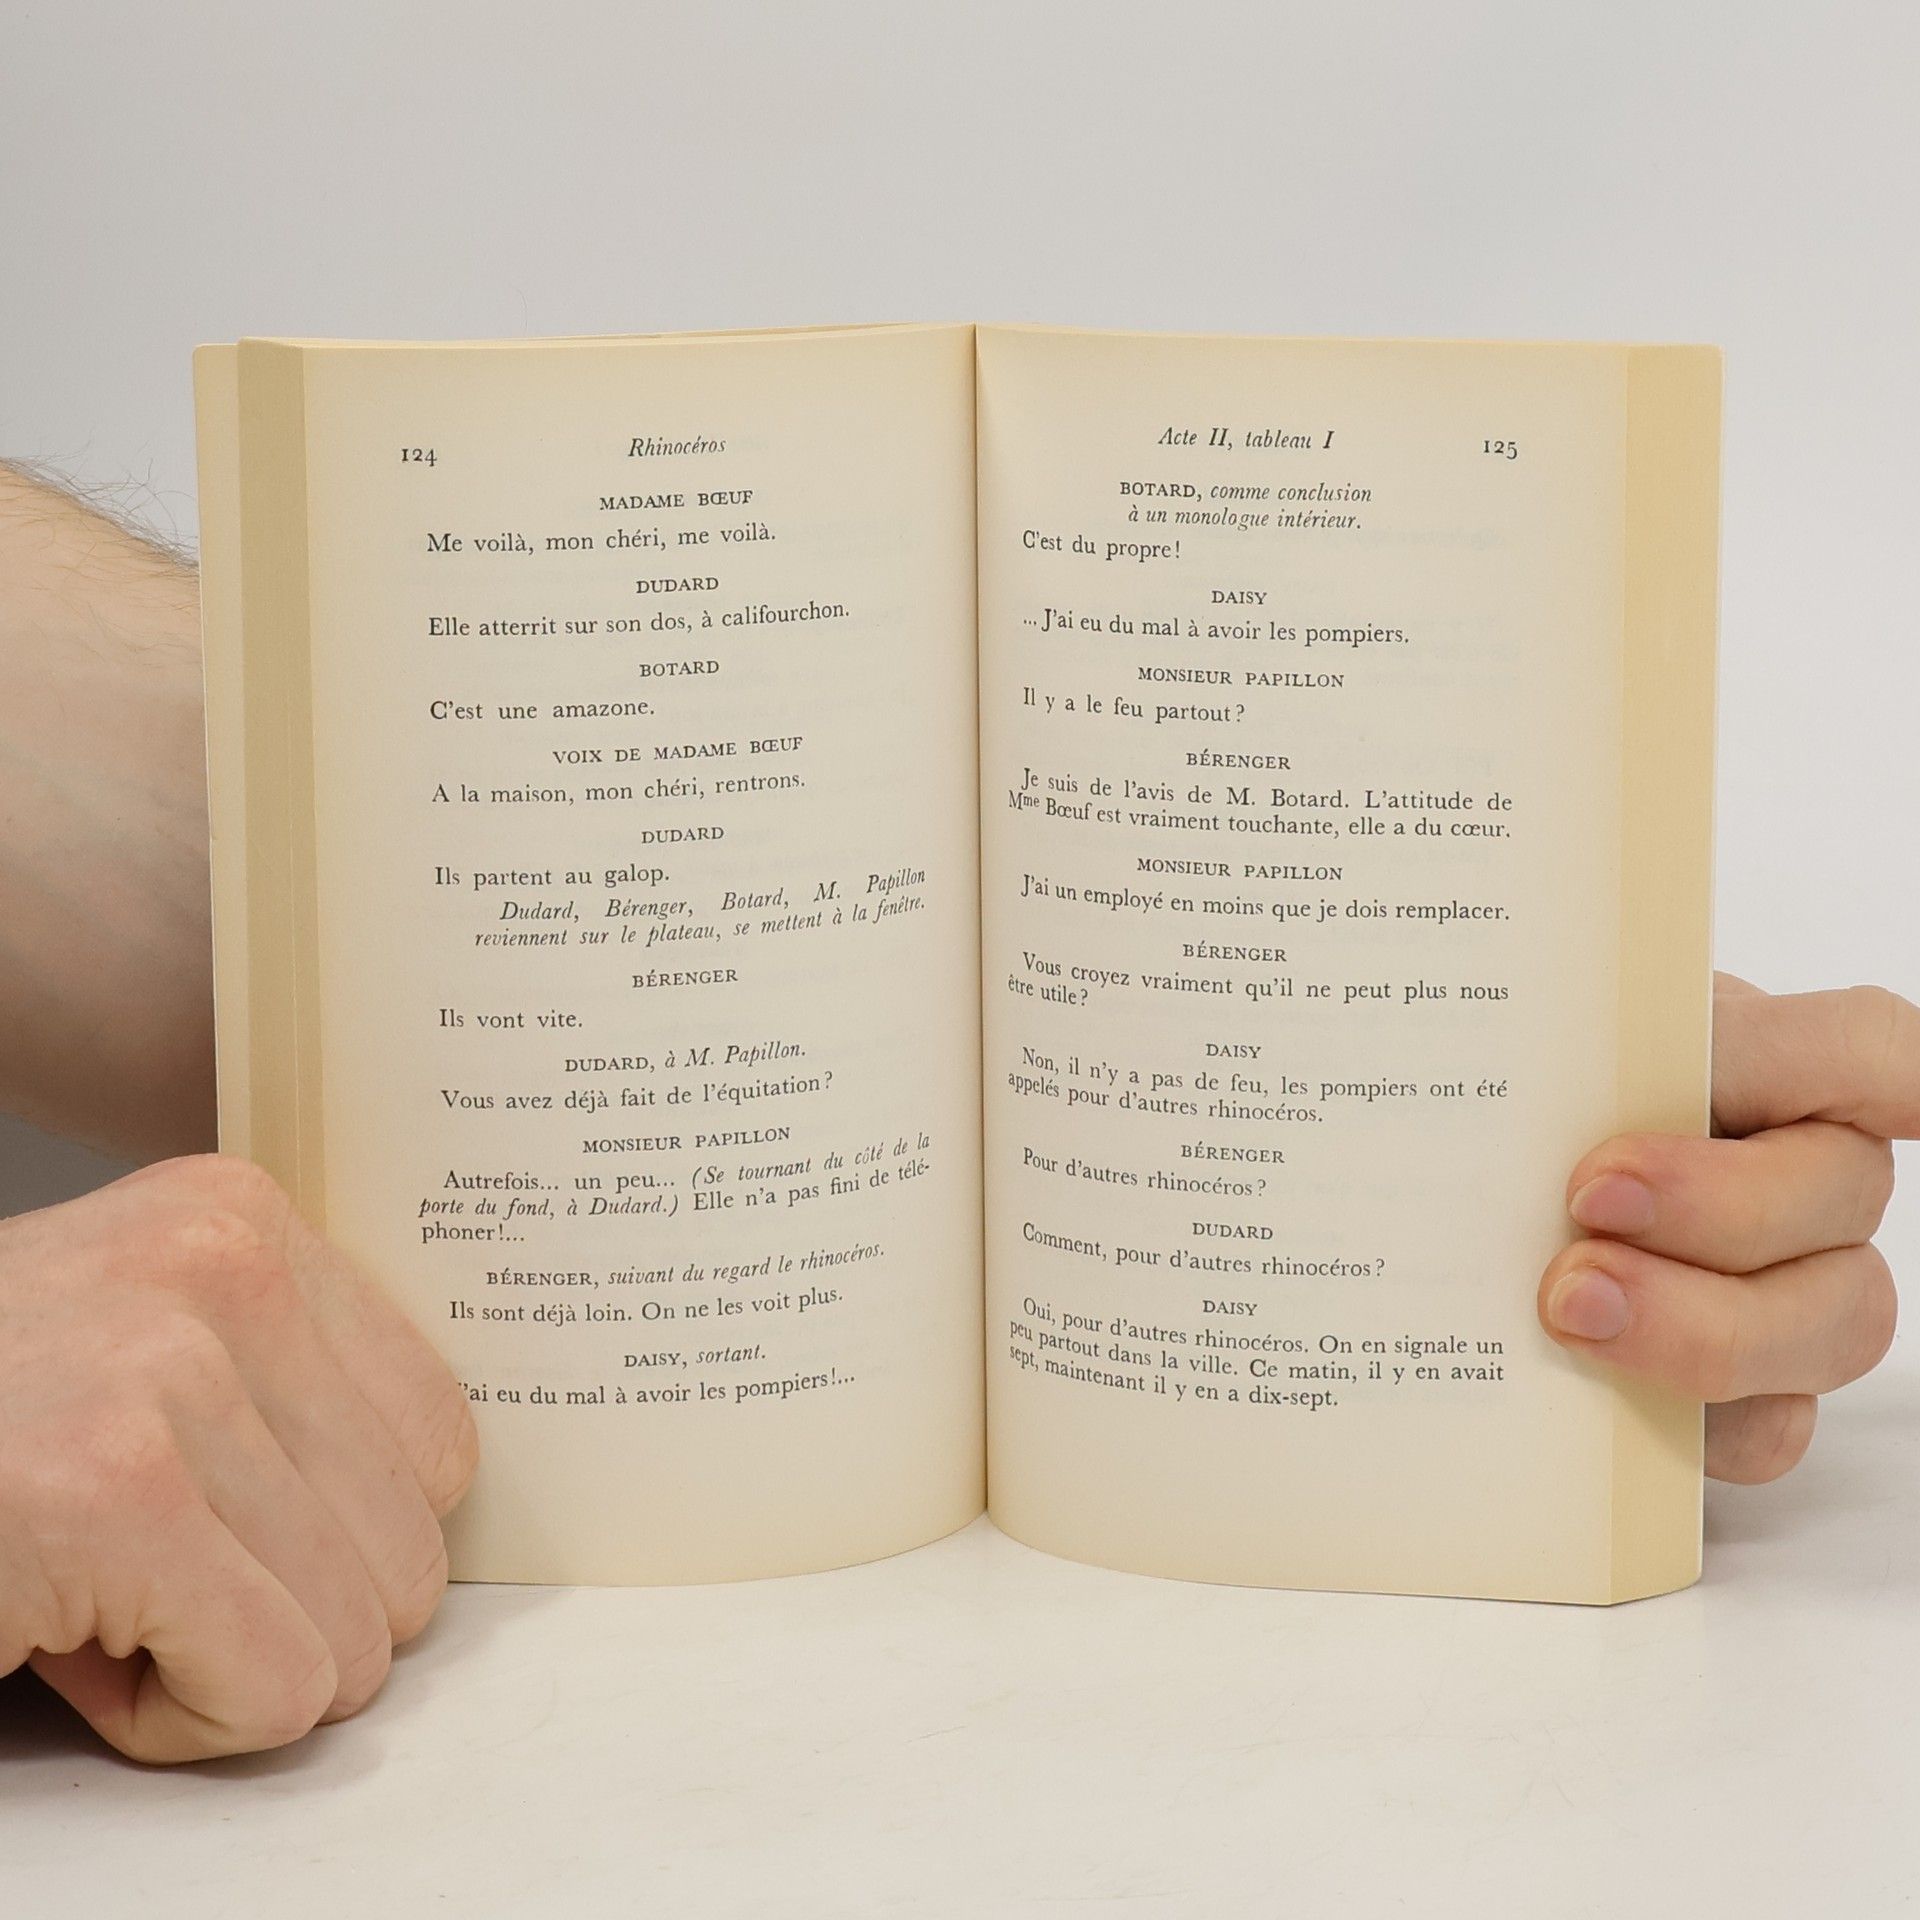 124
Rhinocéros
MADAME BŒUF
Me voilà, mon chéri, me voilà.
DUDARD
Elle atterrit sur son dos, à califourchon.
BOTARD
C'est une amazone.
VOIX DE MADAME BŒUF
A la maison, mon chéri, rentrons.
DUDARD
Ils partent au galop.
Dudard, Bérenger, Botard, M. Papillon
reviennent sur le plateau, se mettent à la fenêtre.
BÉRENGER
Ils vont vite.
DUDARD, à M. Papillon.
Vous avez déjà fait de l'équitation?
MONSIEUR PAPILLON
Autrefois... un peu... (Se tournant du côté de la
porte du fond, à Dudard.) Elle n'a pas fini de télé-
phoner!...
BÉRENGER, suivant du regard le rhinocéros.
Ils sont déjà loin. On ne les voit plus.
DAISY, sortant.
'ai eu du mal à avoir les pompiers!...
Acte II, tableau I
125
BOTARD, comme conclusion
à un monologue intérieur.
C'est du propre!
DAISY
... J'ai eu du mal à avoir les pompiers.
MONSIEUR PAPILLON
Il y a le feu partout?
BÉRENGER
Je suis de l'avis de M. Botard. L'attitude de
Mme Bœuf est vraiment touchante, elle a du cœur.
MONSIEUR PAPILLON
J'ai un employé en moins que je dois remplacer.
BÉRENGER
Vous croyez vraiment qu'il ne peut plus nous
être utile?
DAISY
Non, il n'y a pas de feu, les pompiers ont été
appelés pour d'autres rhinocéros.
BÉRENGER
Pour d'autres rhinocéros?
DUDARD
Comment, pour d'autres rhinocéros?
DAISY
Oui, pour d'autres rhinocéros. On en signale un
peu partout dans la ville. Ce matin, il y en avait
sept, maintenant il y en a dix-sept.